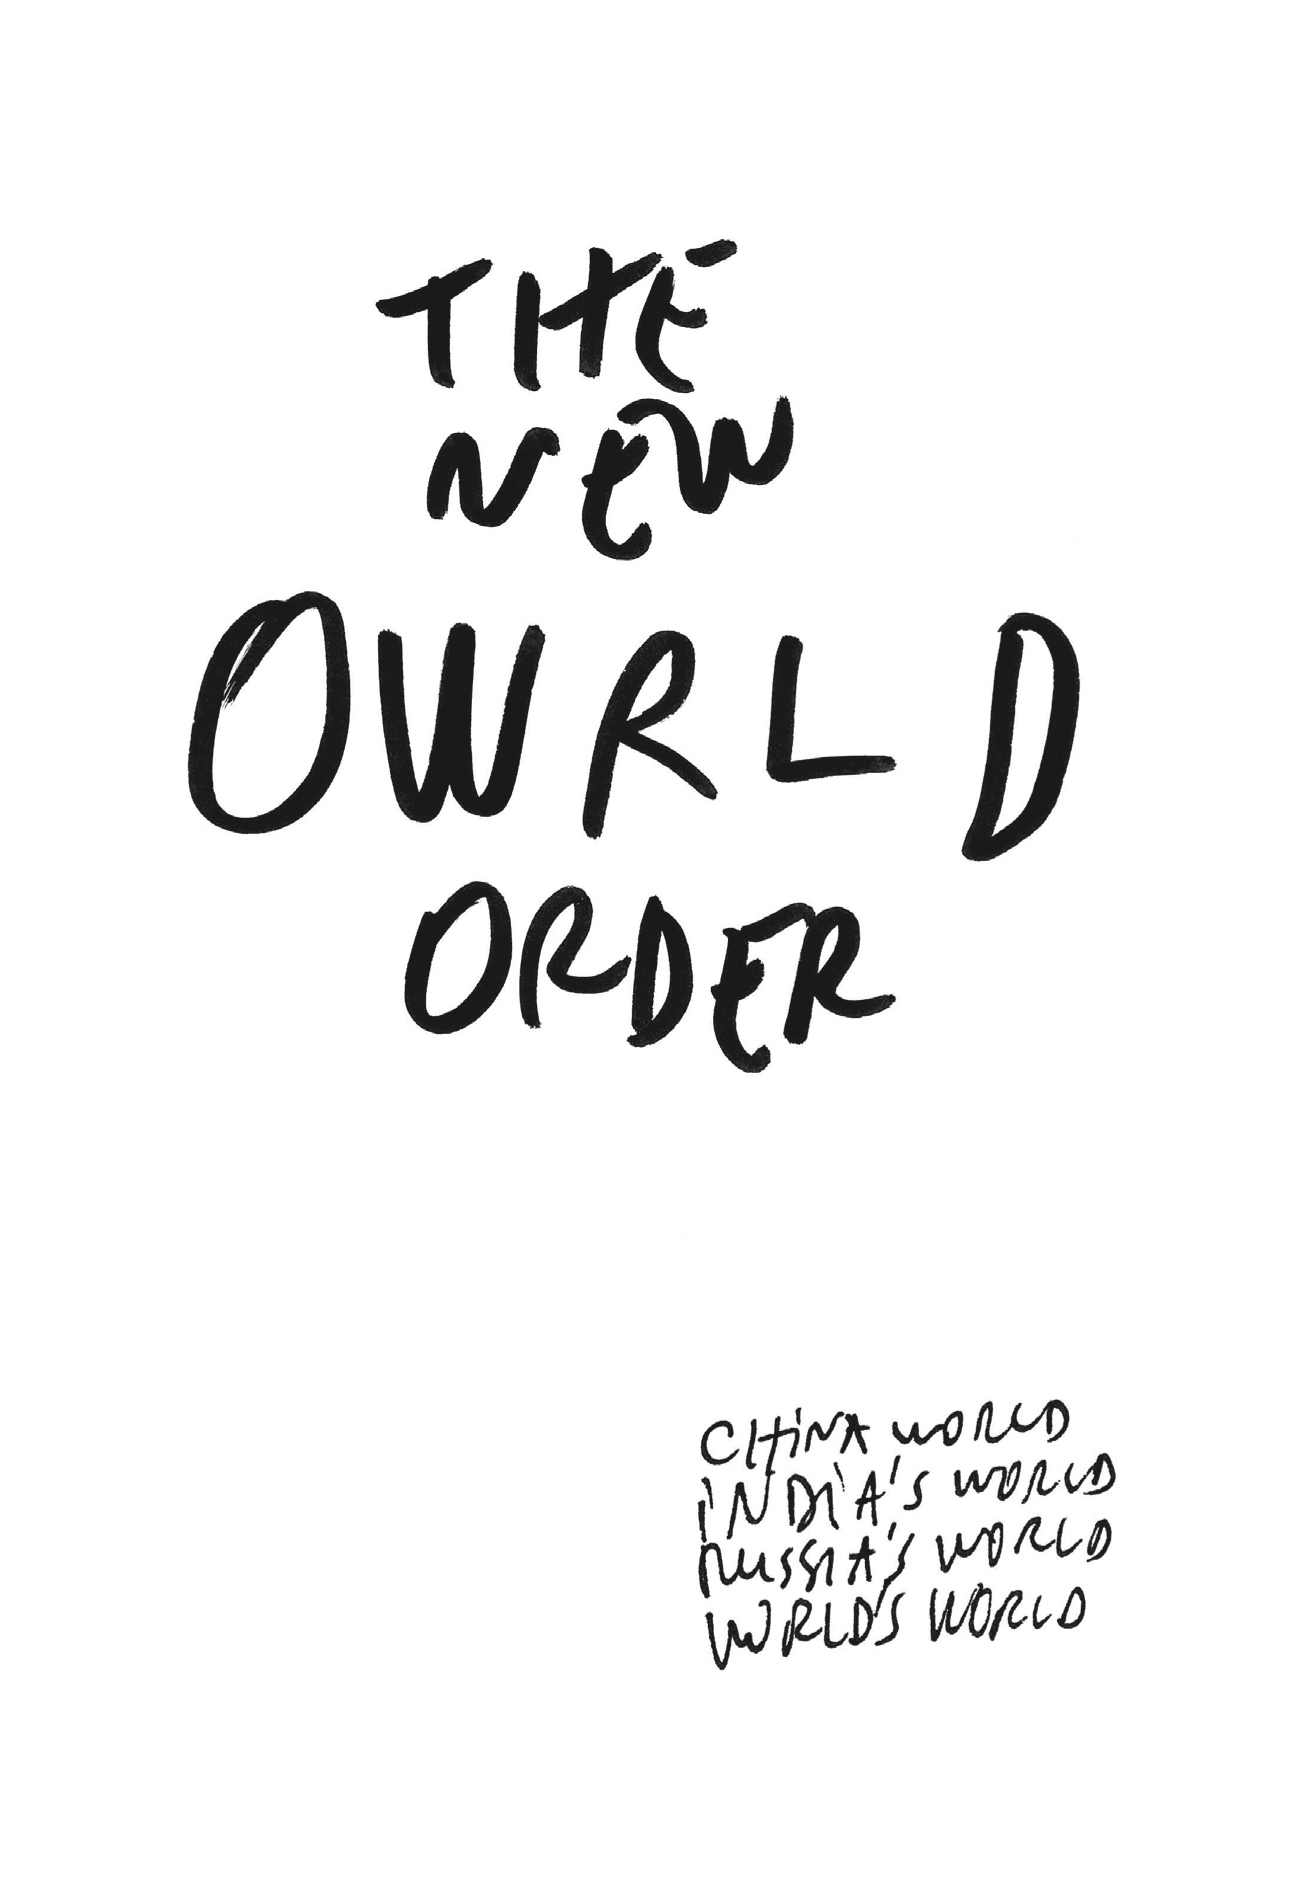 THE
NEW
OWRLD
ORDER
CHiNA WORLD
iNDiA'S WORLD
RUSSIA'S WORLD
WORLD'S WORLD